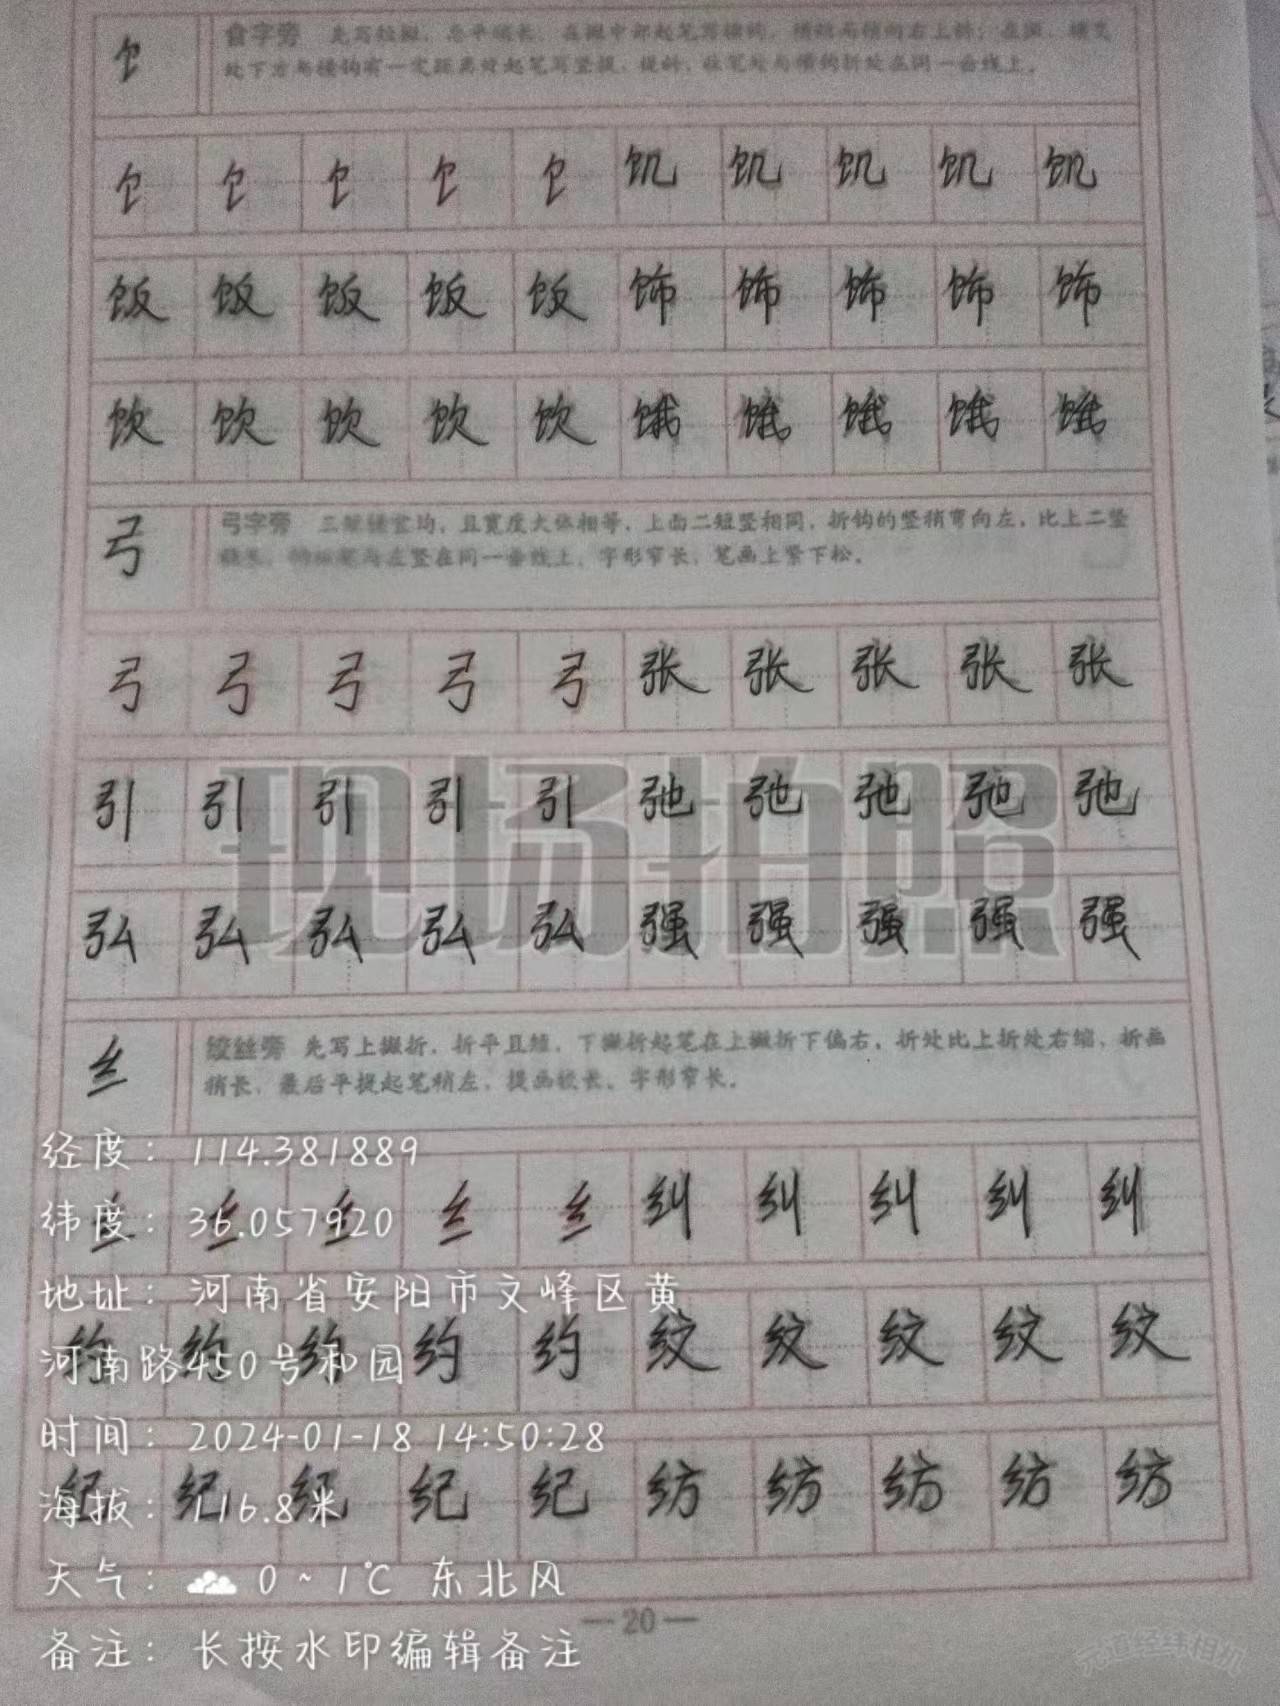 饣
食字旁 先写短撇，忌平稍长，在撇中部起笔写横钩，横段局横向右上斜；在撇、横交
处下方与横钩有一定距离好起笔写竖提，提斜，收笔处与横钩折处在同一垂线上。
饣 饣 饣 饣 饣 饥 饥 饥 饥 饥
饭 饭 饭 饭 饭 饰 饰 饰 饰 饰
饮 饮 饮 饮 饮 饿 饿 饿 饿 饿
弓
弓字旁 三短横宜均，且宽度大体相等，上面二短竖相同，折钩的竖稍弯向左，比上二竖
左竖在同一垂线上，字形窄长，笔画上紧下松。
弓 弓 弓 弓 弓 张 张 张 张 张
引 引 引 引 引 弛 弛 弛 弛 弛
弘 弘 弘 弘 弘 强 强 强 强 强
现场拍照
纟
绞丝旁 先写上撇折，折平且短，下撇折起笔在上撇折下偏右，折处比上折处右缩，折画
稍长，最后平提起笔稍左，提画较长。字形窄长。
纟 纟 纟 纟 纟 纠 纠 纠 纠 纠
约 约 约 约 约 纹 纹 纹 纹 纹
纪 纪 纪 纪 纪 纺 纺 纺 纺 纺
经度：114.381889
纬度：36.057920
地址：河南省安阳市文峰区黄
河南路450号和园
时间：2024-01-18 14:50:28
海拔：116.8米
天气： 0~1℃ 东北风
备注：长按水印编辑备注
—20—
元道经纬相机